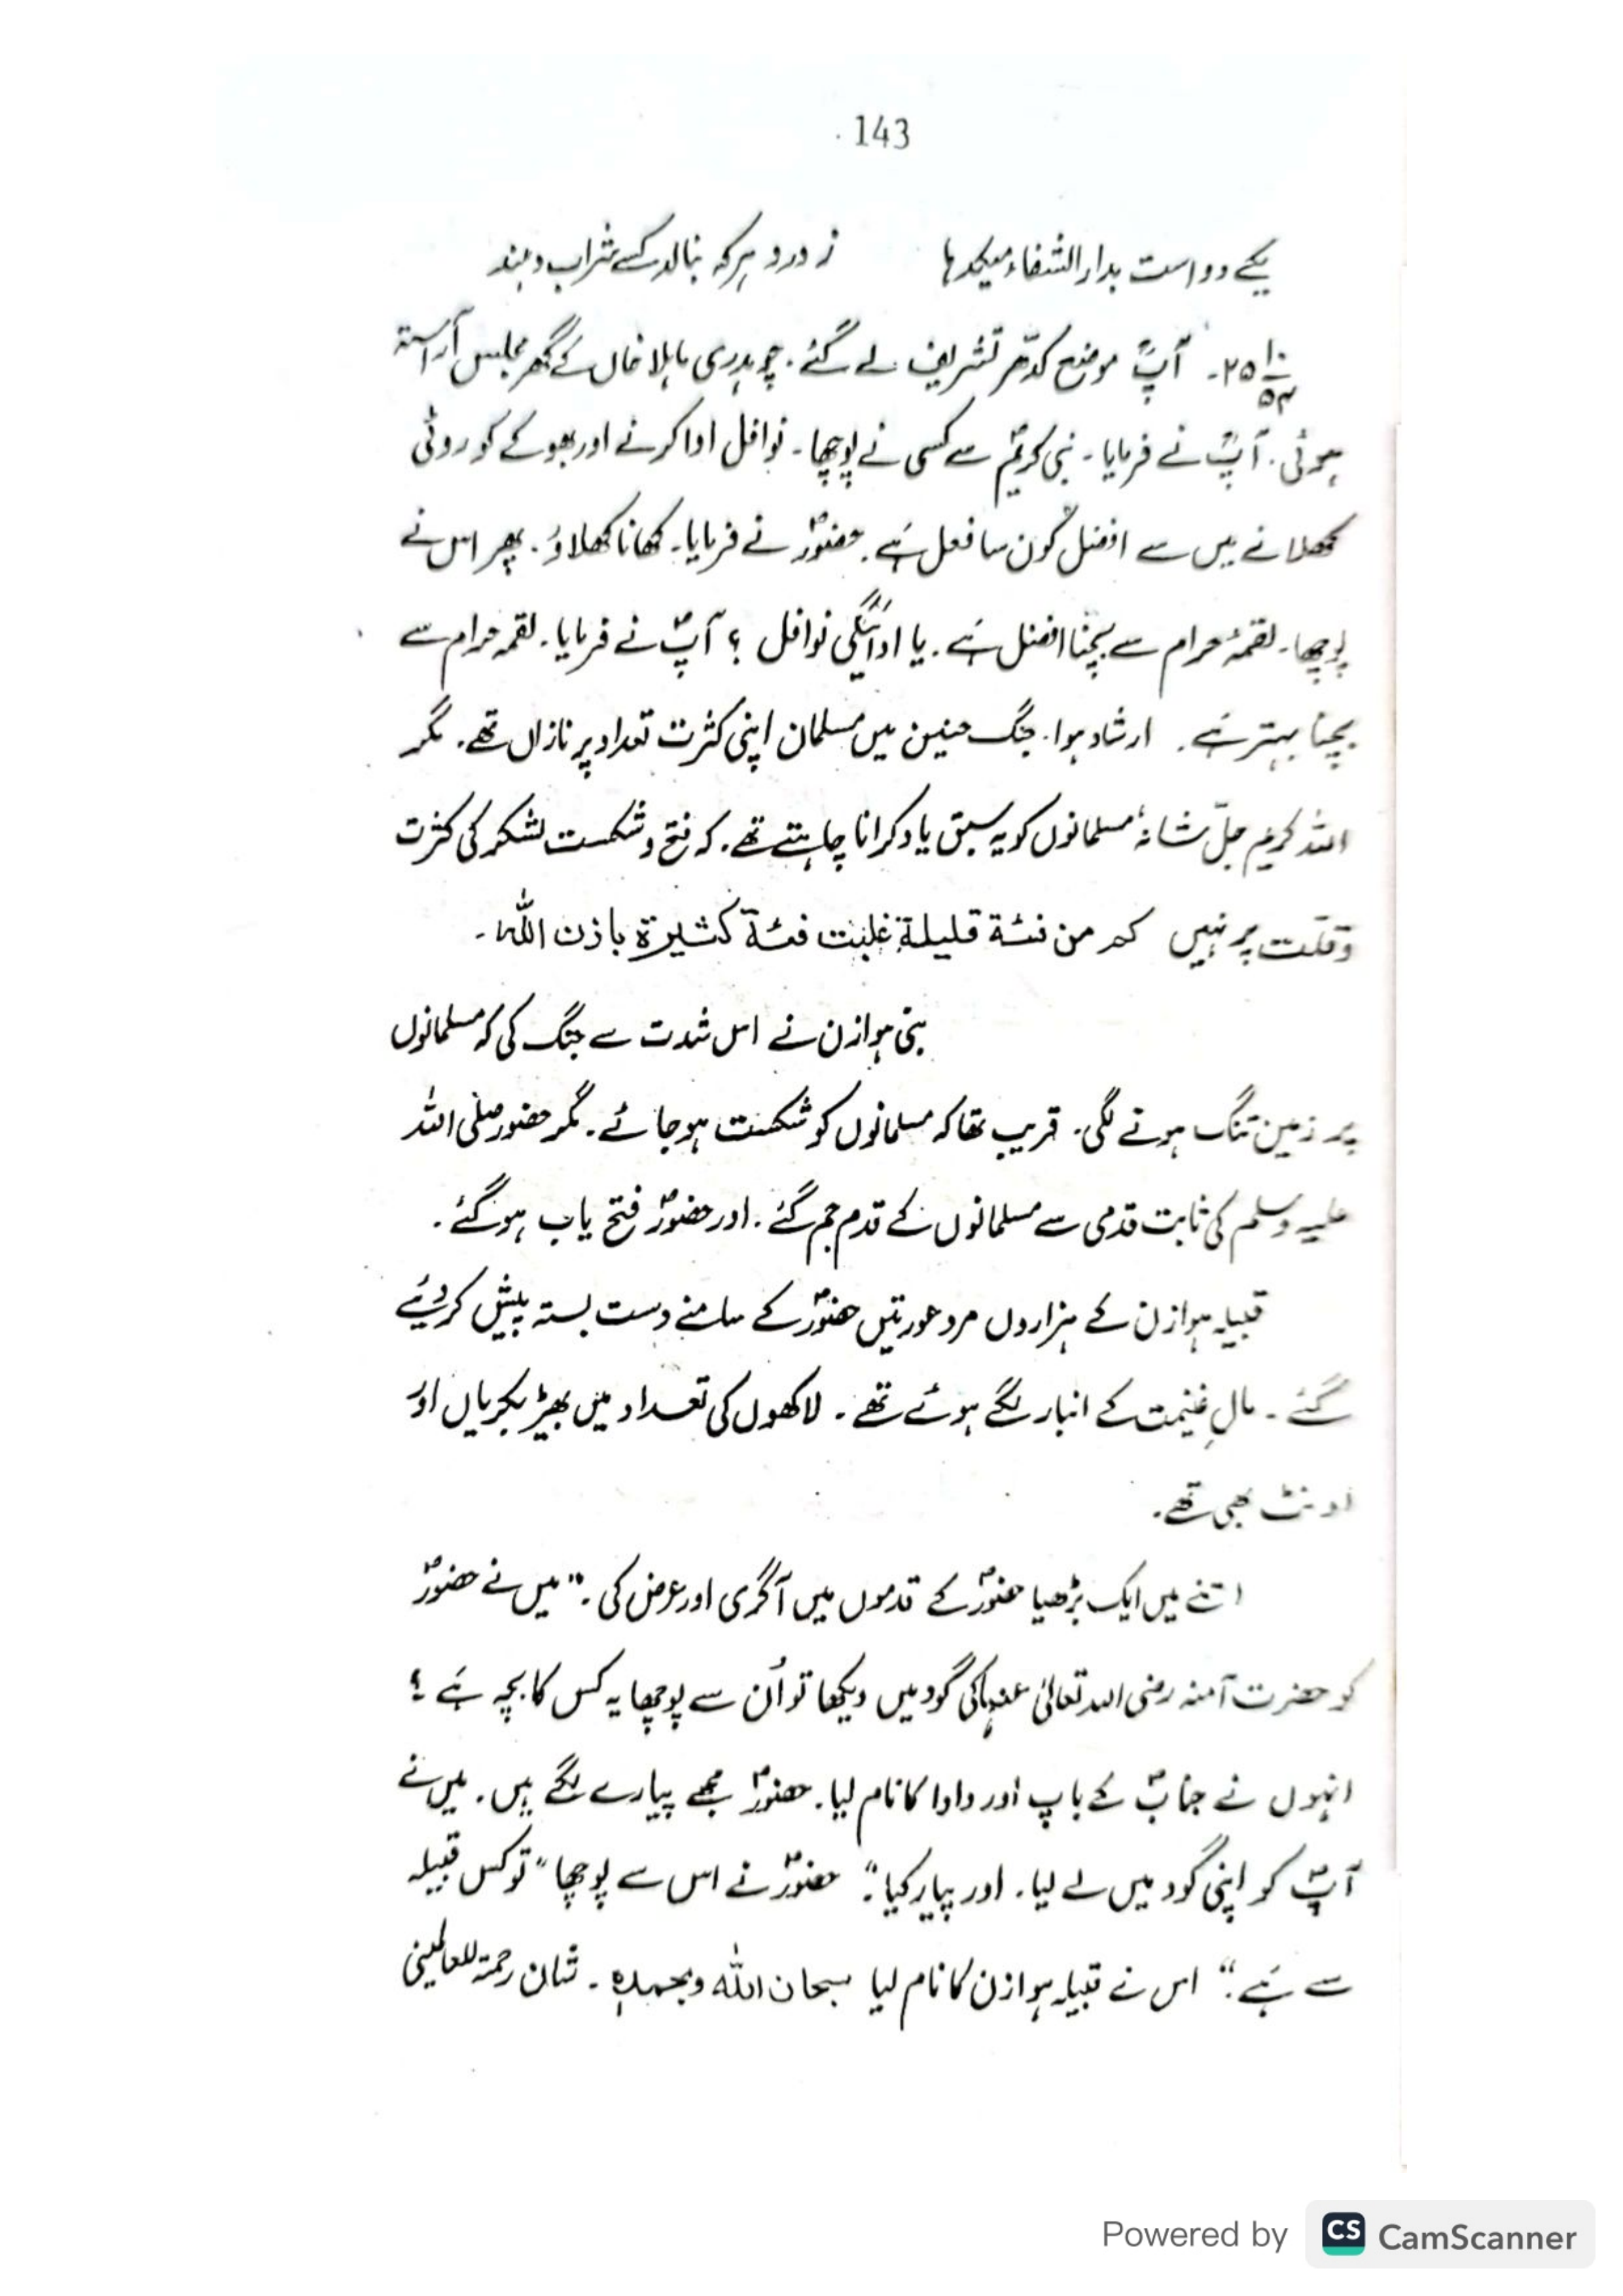 143
یکے دوا ست بدار الشفاء میکدہا ز درد ہر کہ بنالد کسے شراب دہند
۲۵۔ آپؒ موضع کدّھر تشریف لے گئے۔ چوہدری ماہلا خاں کے گھر مجلس آراستہ
ہوئی۔ آپؒ نے فرمایا۔ نبی کریمؐ سے کسی نے پوچھا۔ نوافل ادا کرنے اور بھوکے کو روٹی
کھلانے میں سے افضل کون سا فعل ہَے۔ حضورؐ نے فرمایا۔ کھانا کھلاؤ۔ پھر اس نے
پوچھا۔ لقمۂ حرام سے بچنا افضل ہَے۔ یا ادائیگی نوافل ؟ آپؐ نے فرمایا۔ لقمہ حرام سے
بچنا بہتر ہَے۔ ارشاد ہوا۔ جنگ حنین میں مسلمان اپنی کثرت تعداد پر نازاں تھے۔ مگر
اللہ کریم جلّ شانہٗ مسلمانوں کو یہ سبق یاد کرانا چاہتے تھے۔ کہ فتح و شکست لشکر کی کثرت
و قلت پر نہیں کم من فئة قلیلة غلبت فئة کثیرة باذن اللہ۔
بنی ہوازن نے اس شدت سے جنگ کی کہ مسلمانوں
پر زمین تنگ ہونے لگی۔ قریب تھا کہ مسلمانوں کو شکست ہو جائے۔ مگر حضور صلی اللہ
علیہ وسلم کی ثابت قدمی سے مسلمانوں کے قدم جم گئے۔ اور حضورؐ فتح یاب ہو گئے۔
قبیلہ ہوازن کے ہزاروں مرد عورتیں حضورؐ کے سامنے دست بستہ پیش کر دیئے
گئے۔ مالِ غنیمت کے انبار لگے ہوئے تھے۔ لاکھوں کی تعداد میں بھیڑ بکریاں اور
اونٹ بھی تھے۔
اتنے میں ایک بڑھیا حضورؐ کے قدموں میں آگری اور عرض کی۔ "میں نے حضورؐ
کو حضرت آمنہ رضی اللہ تعالیٰ عنہا کی گود میں دیکھا تو اُن سے پوچھا یہ کس کا بچہ ہَے ؟
انہوں نے جنابؐ کے باپ اور دادا کا نام لیا۔ حضورؐ مجھے پیارے لگے ہیں۔ میں نے
آپؐ کو اپنی گود میں لے لیا۔ اور پیار کیا۔" حضورؐ نے اس سے پوچھا "تو کس قبیلہ
سے ہَے۔" اس نے قبیلہ ہوازن کا نام لیا سبحان اللہ وبحمدہٖ۔ شان رحمۃ للعالمینی
Powered by CS CamScanner